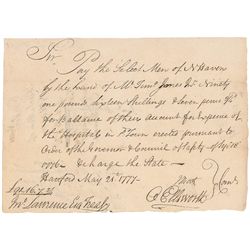 Sir Pay the Select Men of N Haven
by the hand of Mr Tim.o Jones Jnr Ninety
one pounds sixteen Shillings & seven pence
for Ballance of their Account for Expence of
the Hospital in Town erected pursuant to
Order of the Governor & Council of Safety
1776 & charge the State
Hartford May 21st 1777
£91.16.7
Jno Lawrence Esqr Treasr
O Ellsworth
Comtt